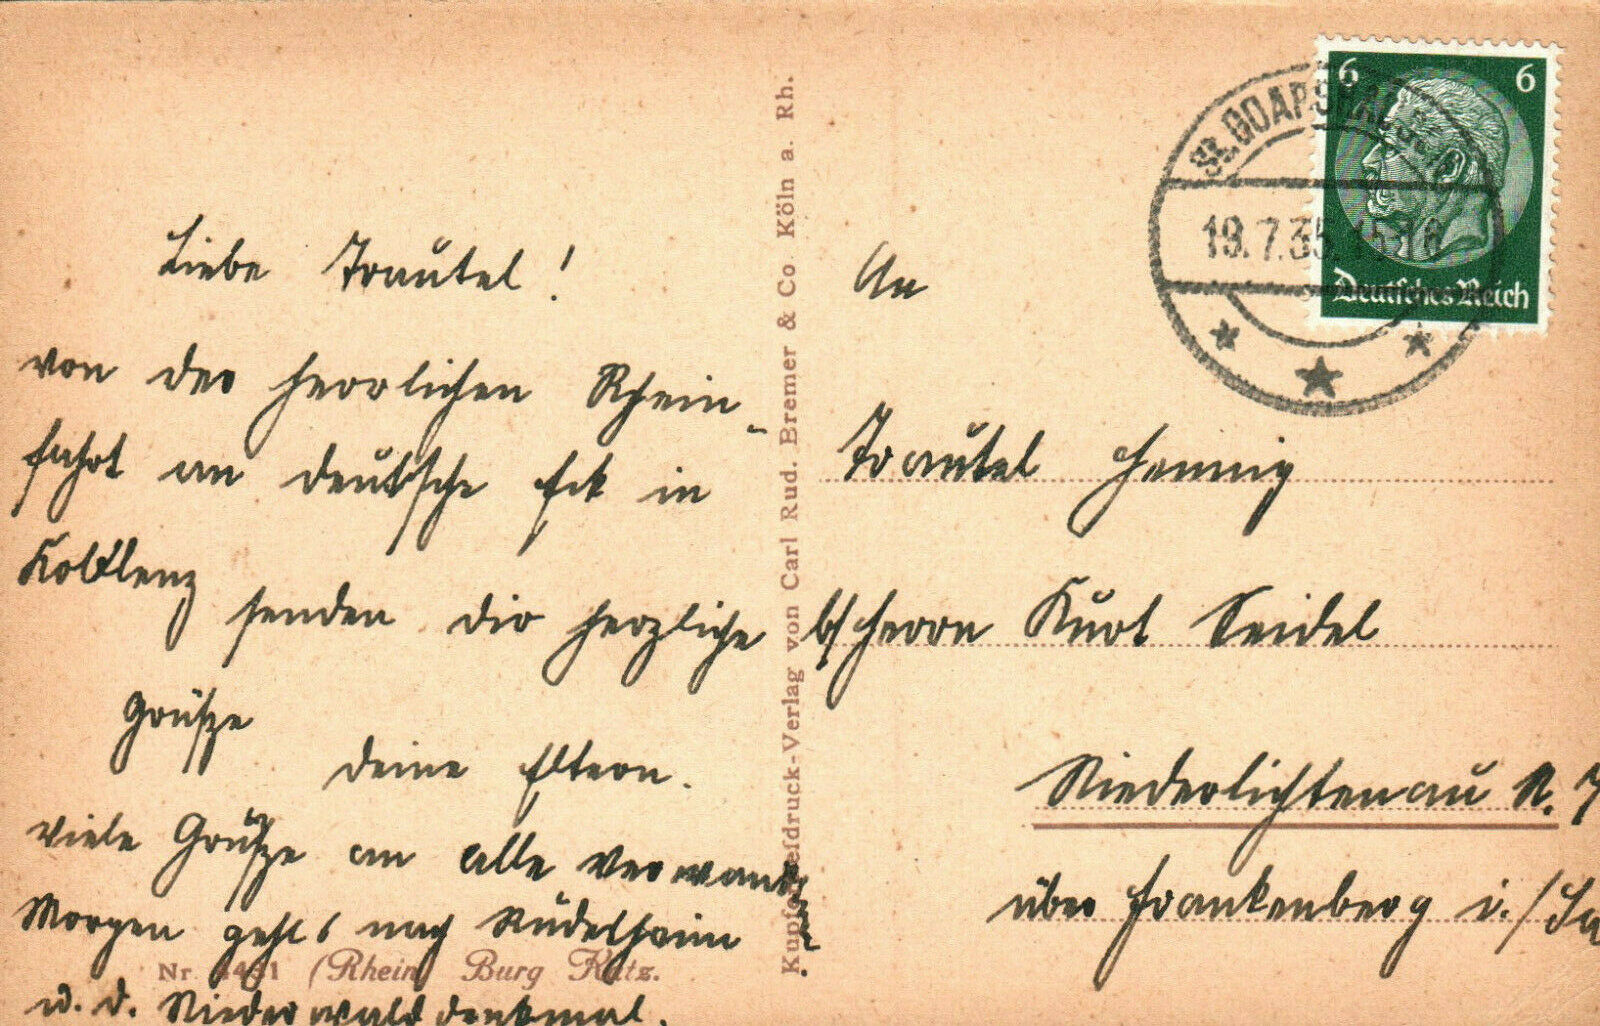 Liebe Trautel!
von der herrlichen Rhein-
fahrt am deutsche Eck in
Koblenz
senden dir herzliche
Grüsze
deine Eltern.
viele Grüsze an alle Verwandten
Morgen gehts nach Rüdesheim
u. d. Niederwalddenkmal.
Nr. 4481 (Rhein) Burg Katz.
Kupfertiefdruck-Verlag von Carl Rud. Bremer & Co. Köln a. Rh.
6 6
Deutsches Reich
St. GOARSHAUSEN
19.7.35. 15-16
An
Trautel Hennig
b/Herrn Kurt Seidel
Niederlichtenau N.
über Frankenberg i./Sa